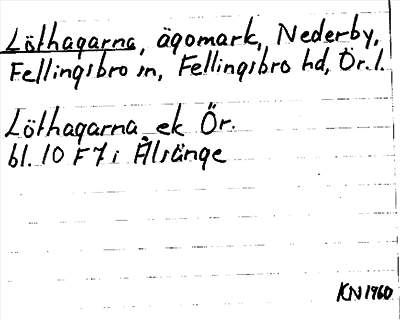 Löthagarna, ägomark, Nederby,
Fellingsbro sn, Fellingsbro hd, Ör. l.
Löthagarna ek Ör.
bl. 10 F7 i Älsänge
KN 1960